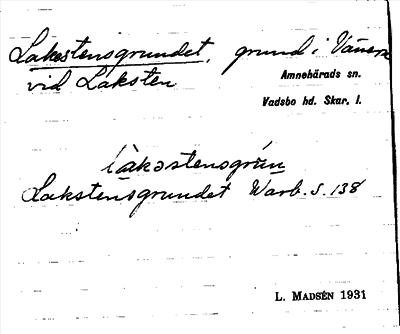 Lakestensgrundet, grund i Vänern
vid Laksten
Amnehärads sn.
Vadsbo hd. Skar. l.
làkəstensgrún
Lakstensgrundet Warb. s. 138
L. MADSÉN 1931